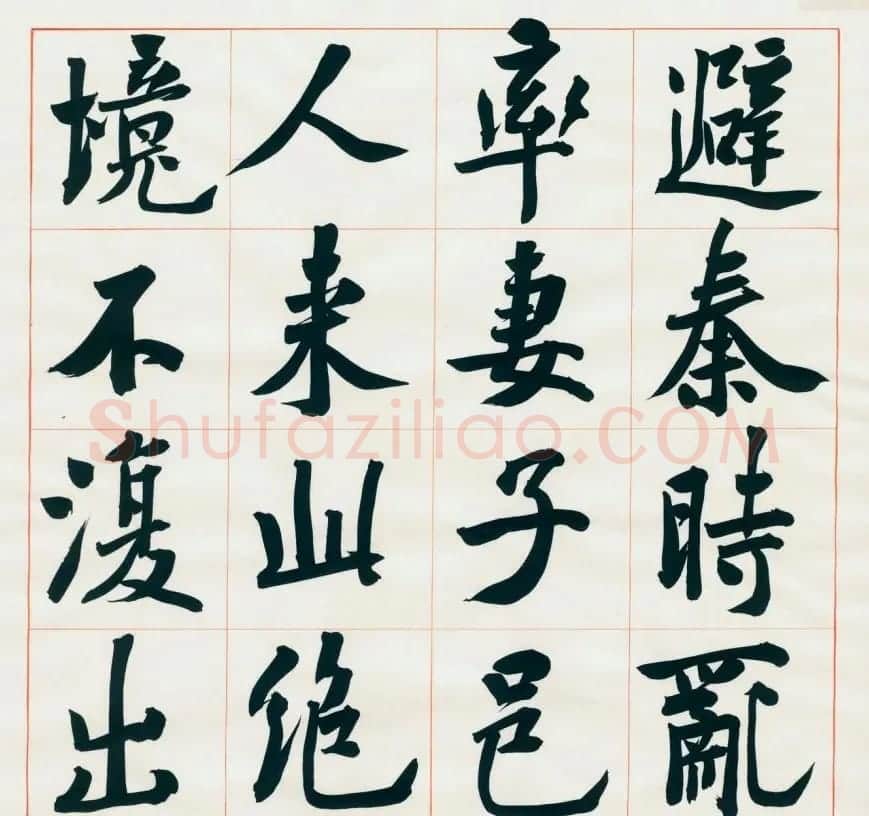 避秦時亂
率妻子邑
人来此絶
境不復出
Shufaziliao.COM